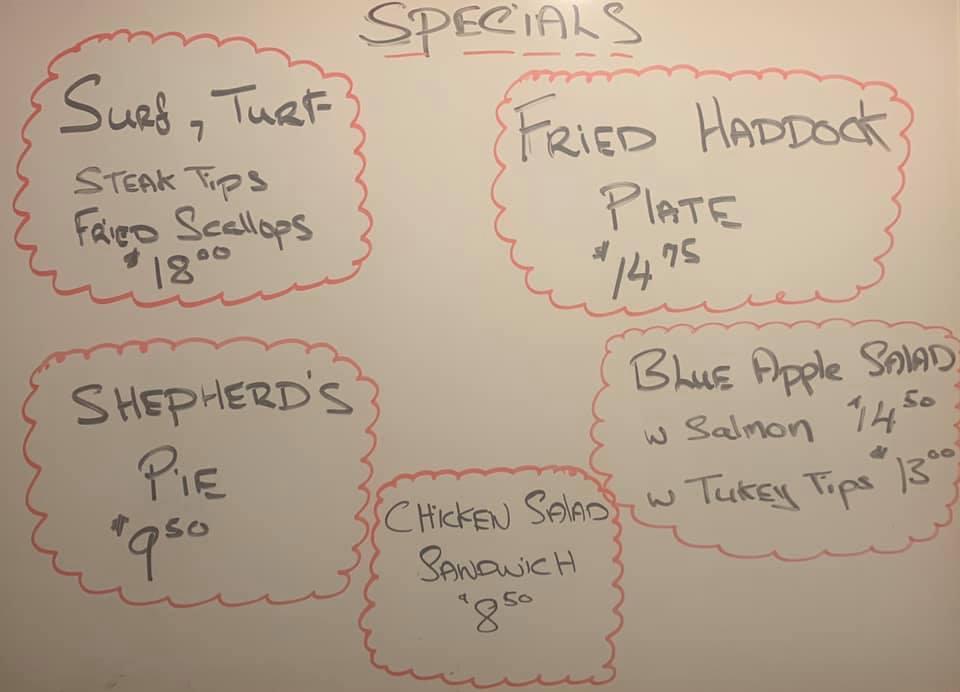 SPECIALS
SURF, TURF
STEAK TIPS
FRIED SCALLOPS
$18.00
FRIED HADDOCK
PLATE
$14.75
SHEPHERD'S
PIE
$9.50
BLUE APPLE SALAD
W SALMON $14.50
W TUKEY TIPS $13.00
CHICKEN SALAD
SANDWICH
$8.50